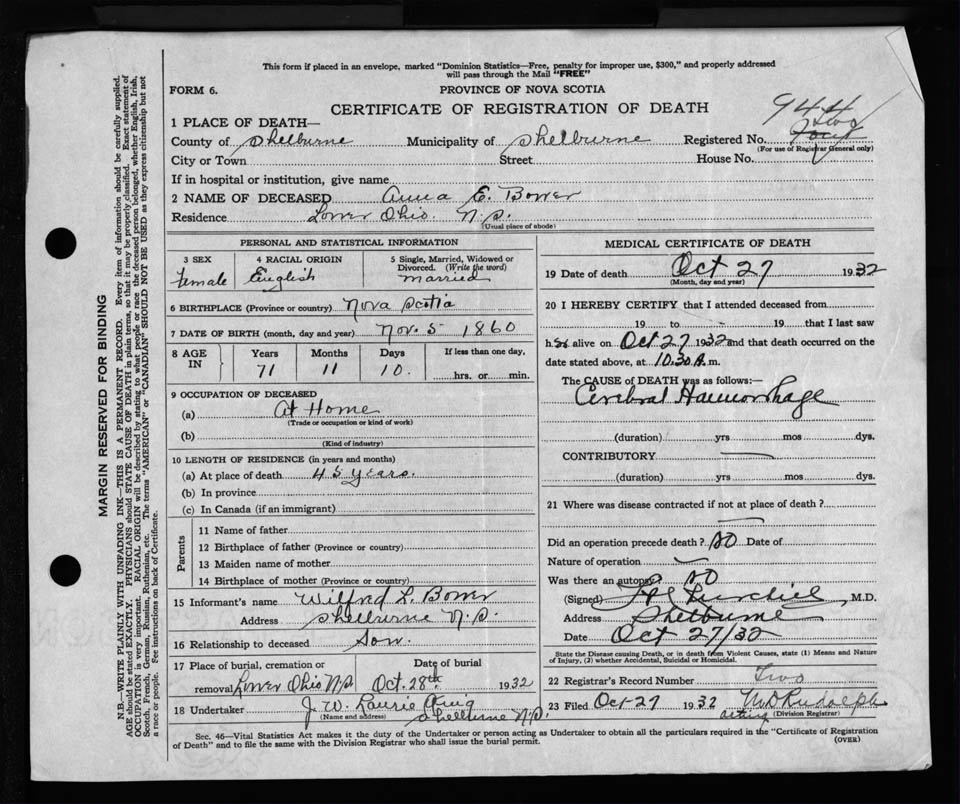 This form if placed in an envelope, marked "Dominion Statistics—Free, penalty for improper use, $300," and properly addressed
will pass through the Mail "FREE"
FORM 6.
PROVINCE OF NOVA SCOTIA
CERTIFICATE OF REGISTRATION OF DEATH
944
1 PLACE OF DEATH—
two
County of Shelburne Municipality of Shelburne Registered No.
(For use of Registrar General only)
City or Town Street House No.
If in hospital or institution, give name
2 NAME OF DECEASED Anna E. Bower
Residence Lower Ohio. N.S.
(Usual place of abode)
PERSONAL AND STATISTICAL INFORMATION
3 SEX 4 RACIAL ORIGIN 5 Single, Married, Widowed or
Divorced. (Write the word)
Female English Married
6 BIRTHPLACE (Province or country) Nova Scotia
7 DATE OF BIRTH (month, day and year) Nov. 5 1860
8 AGE IN Years Months Days If less than one day,
71 11 10. hrs. or min.
9 OCCUPATION OF DECEASED
(a) At Home
(Trade or occupation or kind of work)
(b)
(Kind of industry)
10 LENGTH OF RESIDENCE (in years and months)
(a) At place of death 45 years.
(b) In province
(c) In Canada (if an immigrant)
Parents
11 Name of father
12 Birthplace of father (Province or country)
13 Maiden name of mother
14 Birthplace of mother (Province or country)
15 Informant's name Wilfred L. Bower
Address Shelburne N.S.
16 Relationship to deceased Son.
17 Place of burial, cremation or Date of burial
removal Lower Ohio N.S. Oct. 28th 1932
18 Undertaker J. W. Laurie King
(Name and address) Shelburne N.S.
MEDICAL CERTIFICATE OF DEATH
19 Date of death Oct 27 1932
(Month, day and year)
20 I HEREBY CERTIFY that I attended deceased from
19 to 19 that I last saw
h alive on Oct 27 1932 and that death occurred on the
date stated above, at 10.30 A. m.
The CAUSE OF DEATH was as follows:—
Cerebral Haemorrhage
(duration) yrs mos dys.
CONTRIBUTORY —
(duration) yrs mos dys.
21 Where was disease contracted if not at place of death?
—
Did an operation precede death? No Date of
Nature of operation —
Was there an autopsy No
(Signed) M.D.
Address Shelburne
Date Oct 27/32
State the Disease causing Death, or in death from Violent Causes, state (1) Means and Nature
of Injury, (2) whether Accidental, Suicidal or Homicidal.
22 Registrar's Record Number Two
23 Filed Oct 27 1932 Rudolph
acting (Division Registrar)
Sec. 46—Vital Statistics Act makes it the duty of the Undertaker or person acting as Undertaker to obtain all the particulars required in the "Certificate of Registration
of Death" and to file the same with the Division Registrar who shall issue the burial permit. (OVER)
MARGIN RESERVED FOR BINDING
N.B.—WRITE PLAINLY WITH UNFADING INK—THIS IS A PERMANENT RECORD. Every item of information should be carefully supplied.
AGE should be stated EXACTLY. PHYSICIANS should STATE CAUSE OF DEATH in plain terms, so that it may be properly classified. Exact statement of
OCCUPATION is very important. RACIAL ORIGIN will be described by stating to what people or race the deceased person belonged, whether English, Irish,
Scotch, French, German, Russian, Ruthenian, etc. The terms "AMERICAN" or "CANADIAN" SHOULD NOT BE USED as they express citizenship but not
a race or people. Fee instructions on back of Certificate.